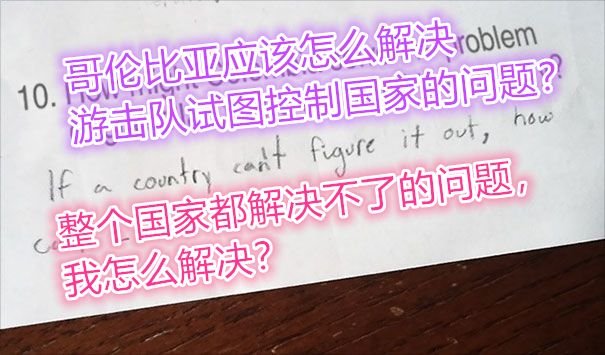 哥伦比亚应该怎么解决
10. problem
游击队试图控制国家的问题?
If a country can't figure it out, how
整个国家都解决不了的问题，
我怎么解决?